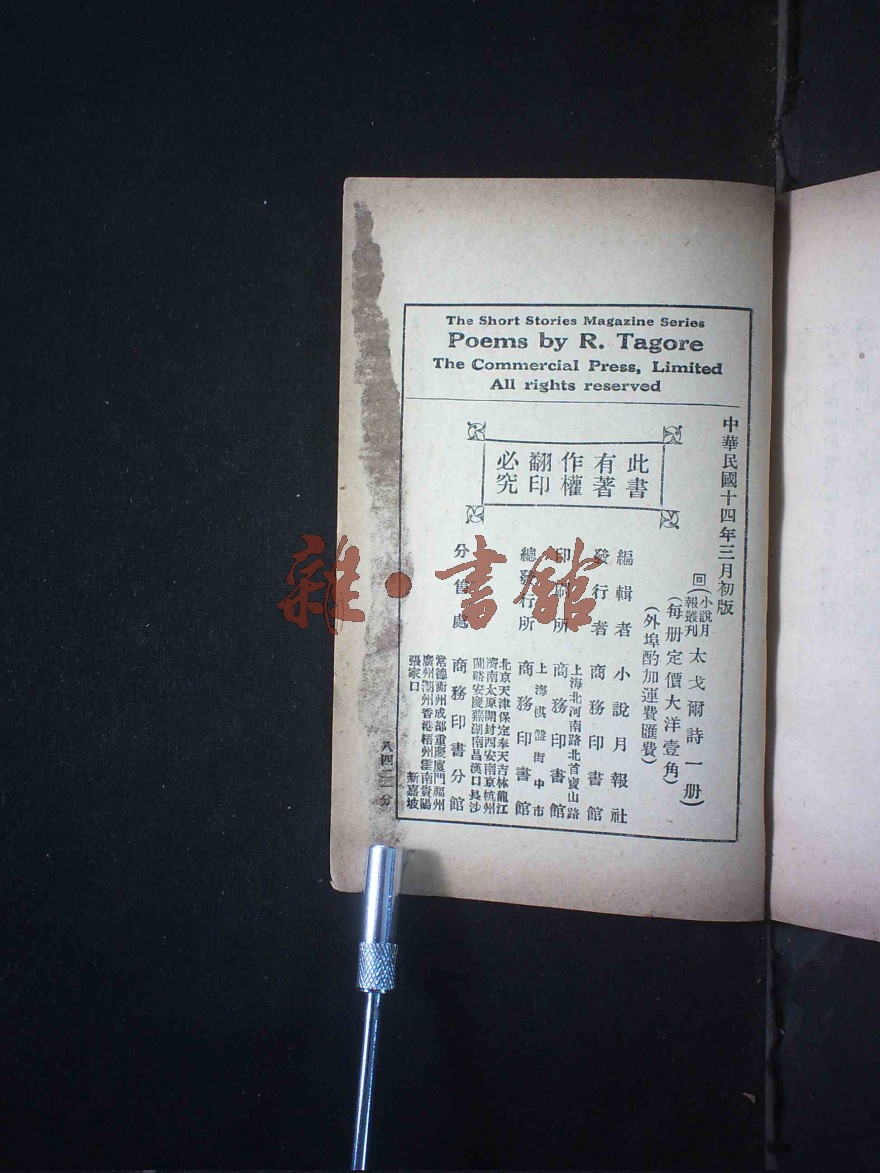 The Short Stories Magazine Series
Poems by R. Tagore
The Commercial Press, Limited
All rights reserved
此書
有著
作權
翻印
必究
中華民國十四年三月初版
回(小說月報叢刊 太戈爾詩一册)
(每册定價大洋壹角)
(外埠酌加運費匯費)
編輯者 小說月報社
發行者 商務印書館
印刷所 上海北河南路北首寶山路 商務印書館
總發行所 上海棋盤街中市 商務印書館
分售處 商務印書分館
北京天津保定奉天吉林龍江
濟南太原開封西安南京杭州
蘭谿安慶蕪湖南昌漢口長沙
常德衡州成都重慶廈門福州
廣州潮州香港梧州雲南貴陽
張家口 新嘉坡
雜·書館